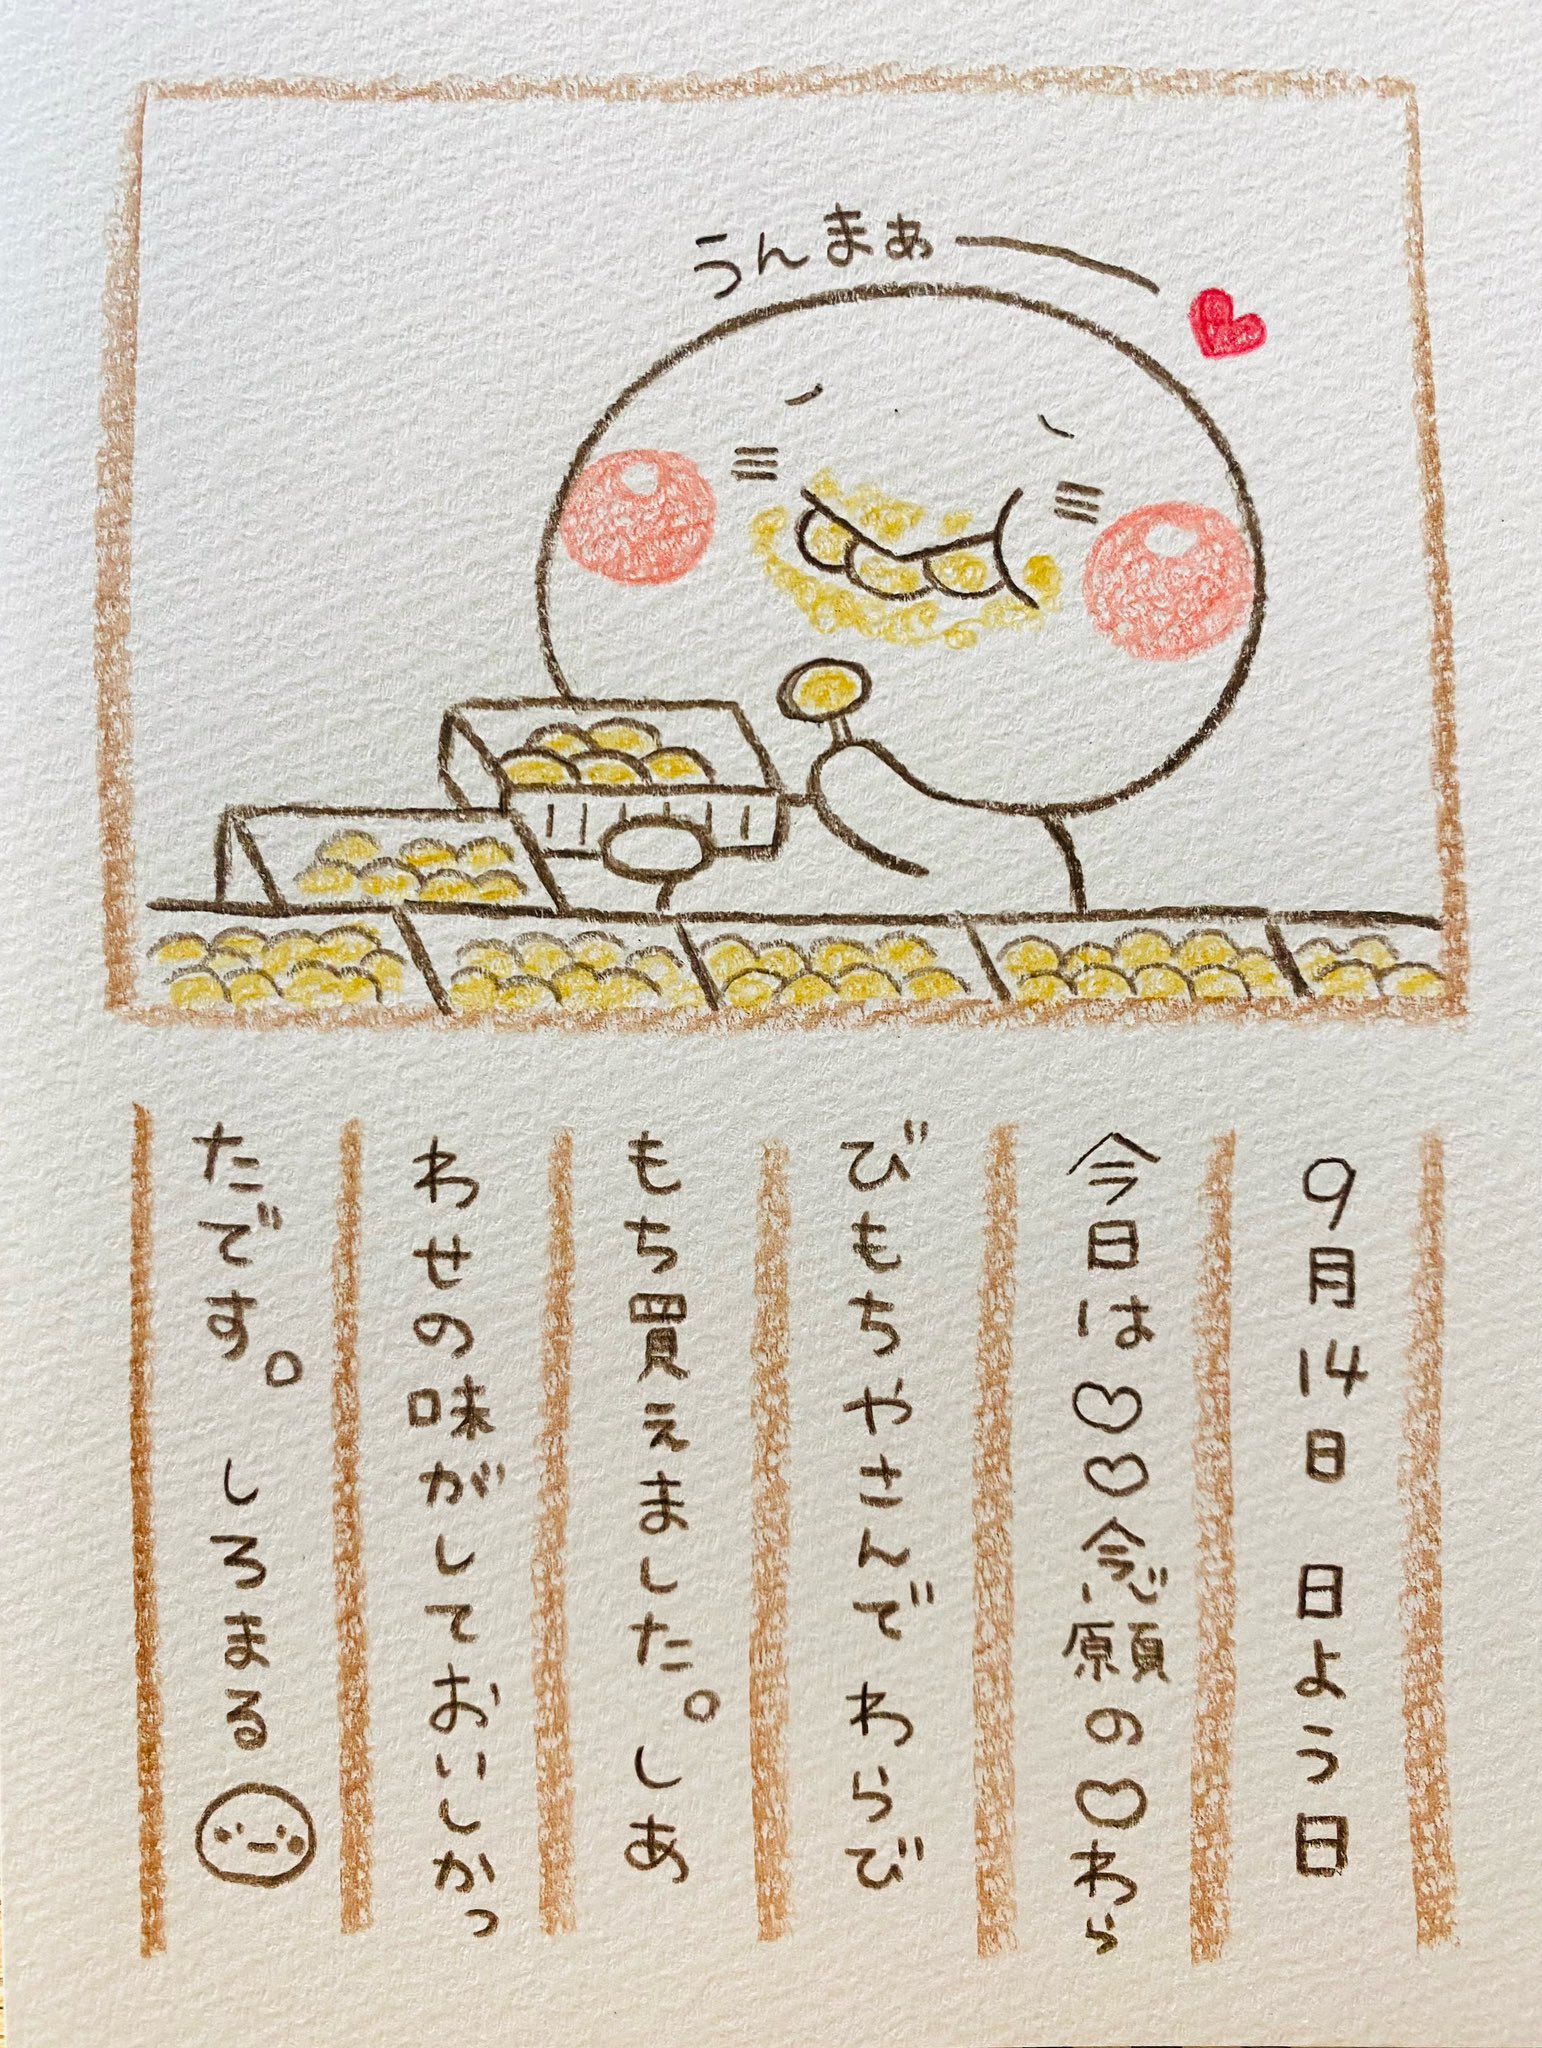 うんまぁー
9月14日 日よう日
今日は♡♡念願の♡わら
びもちやさんでわらび
もち買えました。しあ
わせの味がしておいしかっ
たです。しろまる